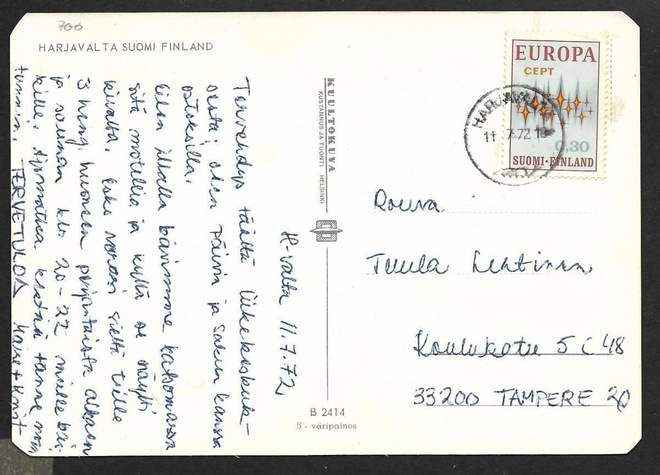 700
HARJAVALTA SUOMI FINLAND
H-valta 11.7.72
Tervehdys täältä liikekesku-
sesta, olen Päivin ja Sakun kanssa
ostoksilla.
Eilen illalla kävimme katsomassa
sitä motellia ja kyllä se näytti
kivalta. Esko varasi sieltä teille
3 heng. huoneen perjantaista alkaen
ja saunan klo 20-22 mielle kai-
kille. Ajomatka kestää tänne noin
tunnin. TERVETULOA
KUULTOKUVA
KUSTANNUS JA TUONTI HELSINKI
B 2414
5 - väripainos
EUROPA
CEPT
0.30
SUOMI-FINLAND
HARJAVALTA
11.7.72
Rouva
Tuula Lehtinen
Koulukatu 5 C 48
33200 TAMPERE 20